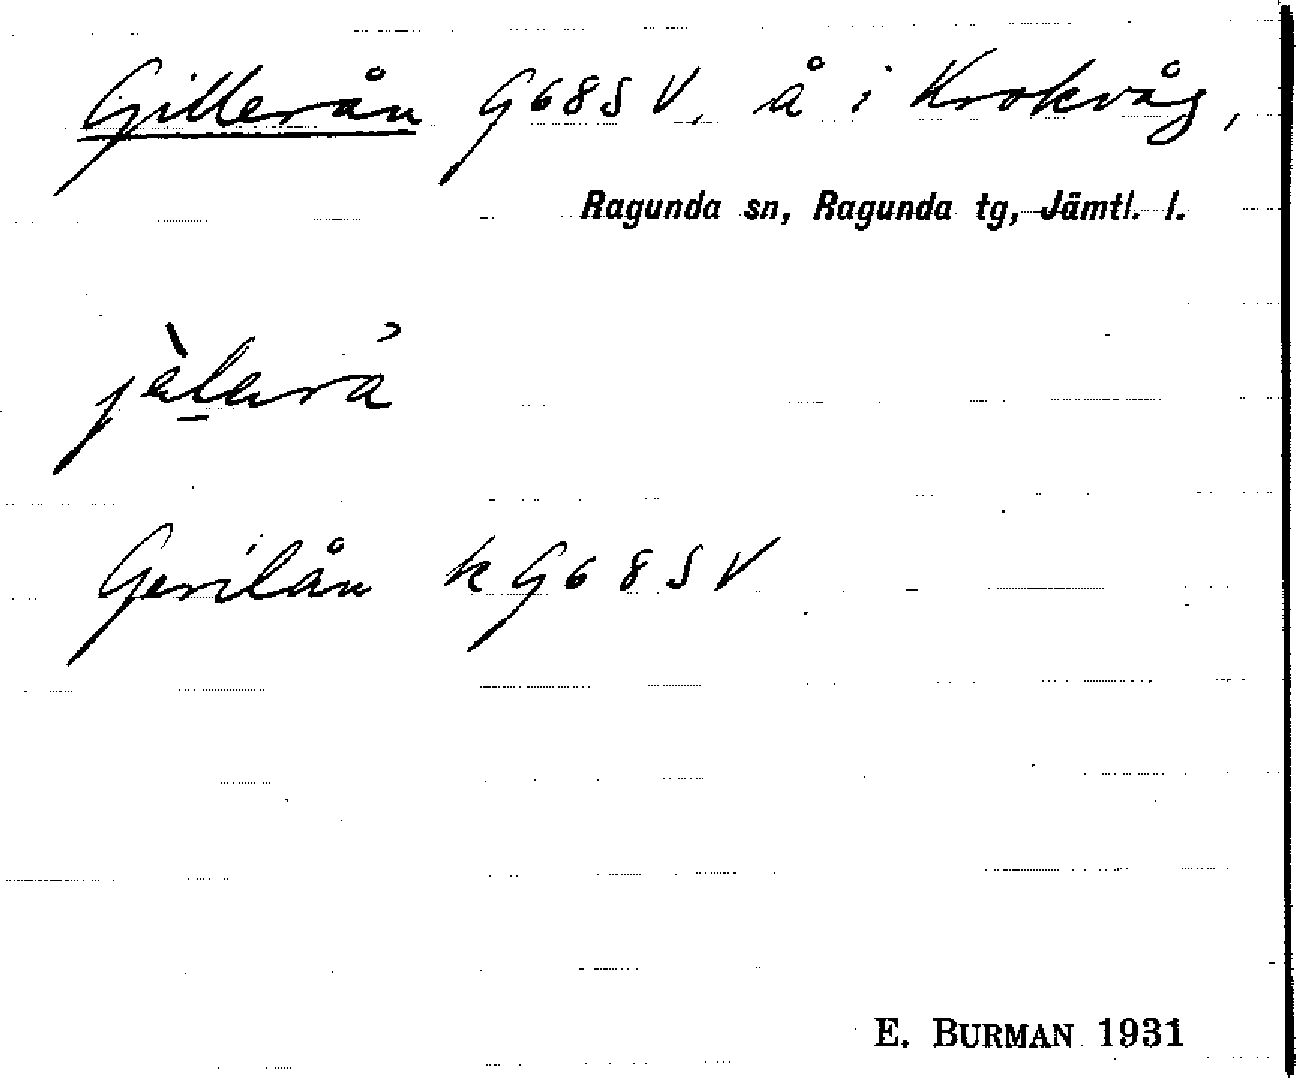 Gillerån G68SV, å i Krokvåg,
Ragunda sn, Ragunda tg, Jämtl. l.
Gerilån k G68SV
E. BURMAN 1931